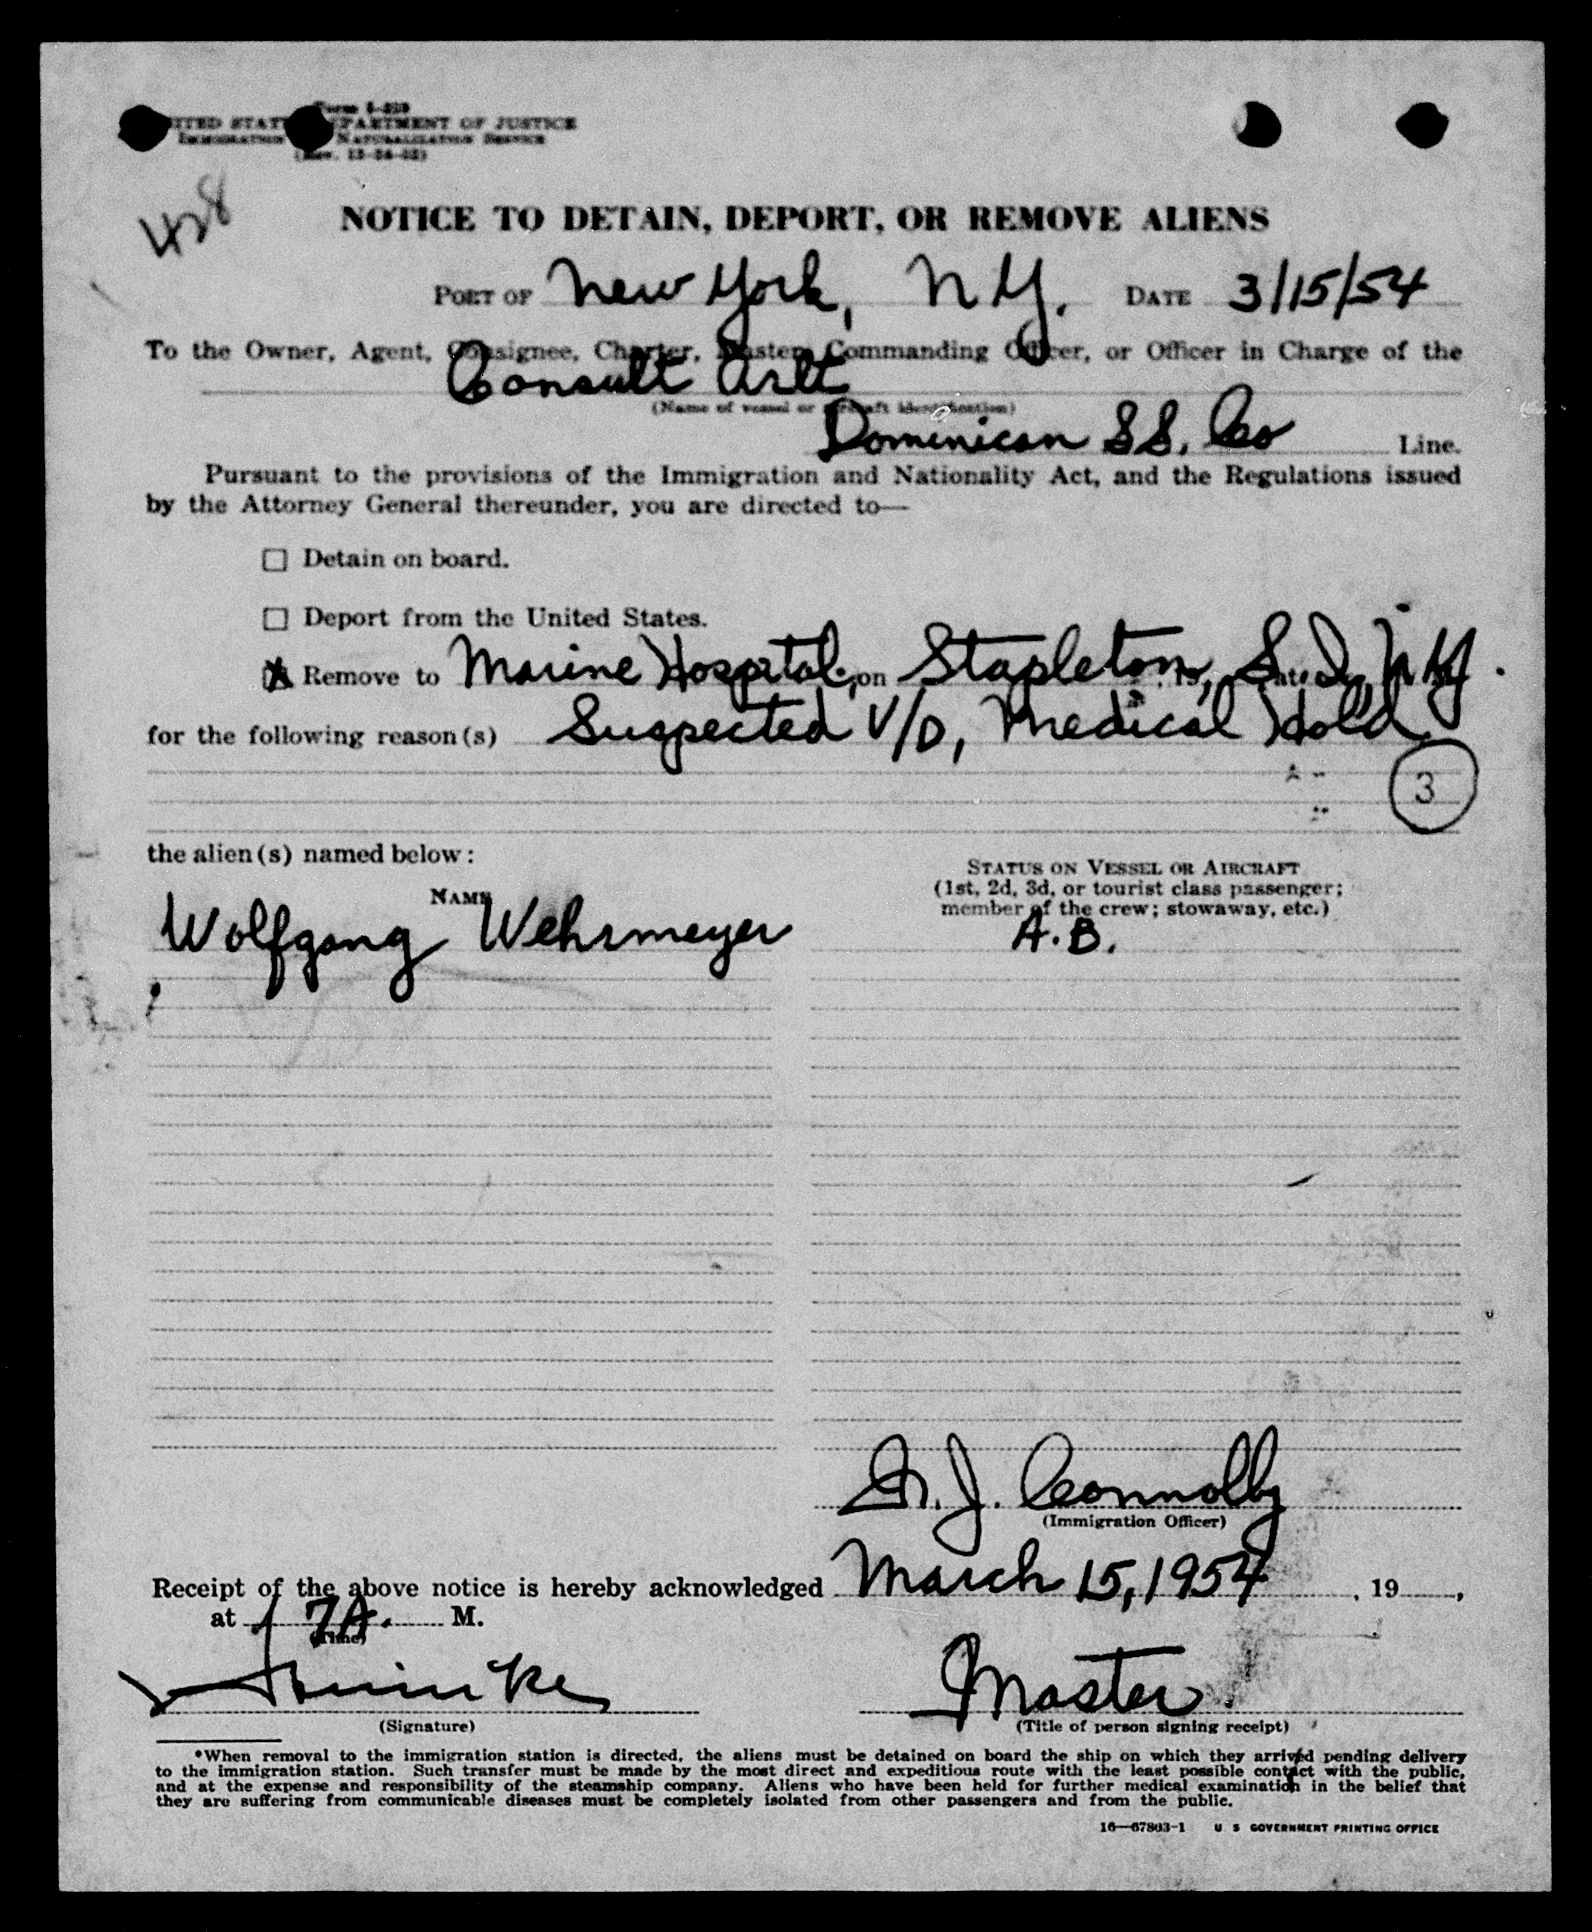 Form I-259
UNITED STATES DEPARTMENT OF JUSTICE
IMMIGRATION NATURALIZATION SERVICE
428
NOTICE TO DETAIN, DEPORT, OR REMOVE ALIENS
PORT OF New York, N.Y. DATE 3/15/54
To the Owner, Agent, Consignee, Charter, Master, Commanding Officer, or Officer in Charge of the
Consult Arlt
(Name of vessel or aircraft identification)
Dominican SS. Co Line.
Pursuant to the provisions of the Immigration and Nationality Act, and the Regulations issued
by the Attorney General thereunder, you are directed to—
☐ Detain on board.
☐ Deport from the United States.
☒ Remove to Marine Hospital, on Stapleton, S.I., N.Y.
for the following reason(s) Suspected V/D, Medical Hold
3
the alien(s) named below:
NAME
STATUS ON VESSEL OR AIRCRAFT
(1st, 2d, 3d, or tourist class passenger;
member of the crew; stowaway, etc.)
Wolfgang Wehrmeyer A.B.
J. Connolly
(Immigration Officer)
Receipt of the above notice is hereby acknowledged March 15, 1954, 19 ,
at 7A. M.
(Time)
Master.
(Signature) (Title of person signing receipt)
*When removal to the immigration station is directed, the aliens must be detained on board the ship on which they arrived pending delivery
to the immigration station. Such transfer must be made by the most direct and expeditious route with the least possible contact with the public,
and at the expense and responsibility of the steamship company. Aliens who have been held for further medical examination in the belief that
they are suffering from communicable diseases must be completely isolated from other passengers and from the public.
16—67803-1 U S GOVERNMENT PRINTING OFFICE